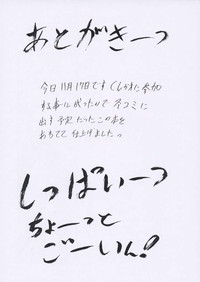 あとがきーっ
今日11月17日です
事に成ったので冬コミに
出す予定だったこの本を
あわてて仕上げました。
しっぱいーっ
ちょーっと
ごーいん!